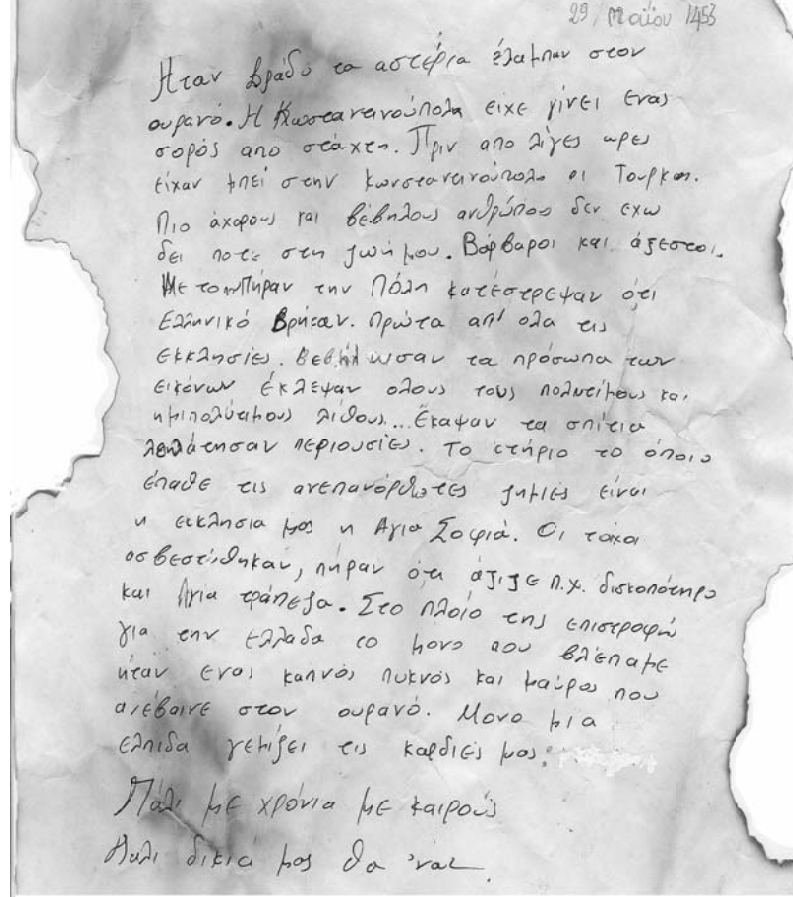 29 Μαΐου 1453
Ήταν βράδυ τα αστέρια έλαμπαν στον
ουρανό. Η Κωσταντινούπολη είχε γίνει ενας
σορός απο στάχτη. Πριν απο λίγες ωρες
είχαν μπεί στην Κωνσταντινούπολη οι Τουρκοι.
Πιο άχαρους και βέβηλους ανθρώπους δεν εχω
δει ποτέ στη ζωή μου. Βάρβαροι και άξεστοι.
Με το που πήραν την Πόλη κατέστρεψαν ότι
Ελληνικό Βρήκαν. Πρώτα απ' ολα τις
εκκλησίες. Βεβήλωσαν τα πρόσωπα των
εικόνων έκλεψαν ολους τους πολυτίμους και
ημιπολύτιμους λίθους... Έκαψαν τα σπίτια
λεηλάτησαν περιουσίες. Το κτήριο το όποιο
έπαθε τις ανεπανόρθωτες ζημιές είναι
η εκκλησια μας η Αγια Σοφιά. Οι τοίχοι
ασβεστώθηκαν, πήραν ότι άξιζε π.χ. δισκοπότηρο
και Άγια τράπεζα. Στο πλοίο της επιστροφής
για την Ελλαδα το μονο που βλέπαμε
ήταν ενας καπνός πυκνός και μαύρος που
ανέβαινε στον ουρανό. Μονο μια
ελπιδα γεμίζει τις καρδιές μας:
Πάλι με χρόνια με καιρούς
Πάλι δικιά μας θα 'ναι.